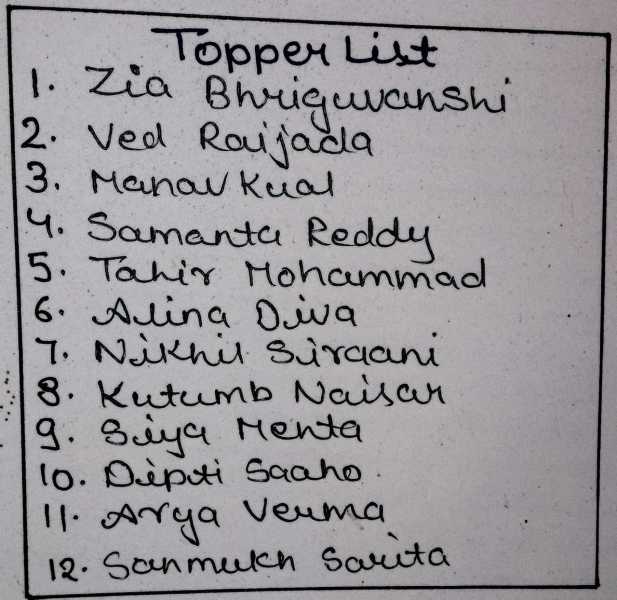 Topper List
1. Zia Bhriguvanshi
2. Ved Raijada
3. Manav Kual
4. Samanta Reddy
5. Tahir Mohammad
6. Alina Diva
7. Nikhil Siraani
8. Kutumb Naisar
9. Siya Menta
10. Dipti Saaho
11. Arya Verma
12. Sanmukh Sarita